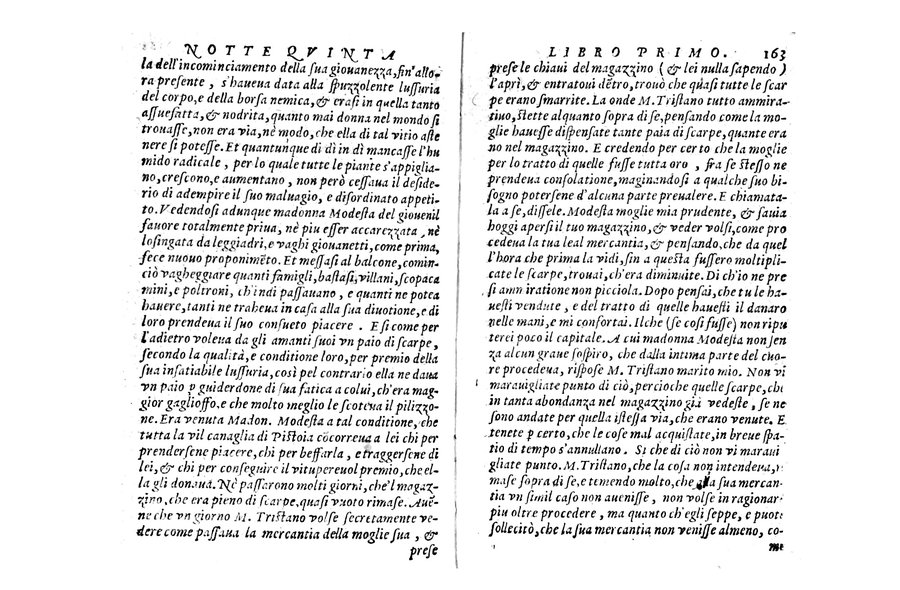 NOTTE QVINTA
la dell'incominciamento della ſua giouanezza, ſin'allo-
ra preſente, s'haueua data alla ſpuzzolente luſſuria
del corpo, e della borſa nemica, & eraſi in quella tanto
aſſuefatta, & nodrita, quanto mai donna nel mondo ſi
trouaſſe, non era via, nè modo, che ella di tal vitio aſte
nere ſi poteſſe. Et quantunque di dì in dì mancaſſe l'hu
mido radicale, per lo quale tutte le piante s'appiglia-
no, creſcono, e aumentano, non però ceſſaua il deſide-
rio di adempire il ſuo maluagio, e diſordinato appeti-
to. Vedendoſi adunque madonna Modeſta del giouenil
fauore totalmente priua, nè piu eſſer accarezzata, nè
loſingata da leggiadri, e vaghi giouanetti, come prima,
fece nuouo proponimẽto. Et meſſaſi al balcone, comin-
ciò vagheggiare quanti famigli, baſtaſi, villani, ſcopaca
mini, e poltroni, ch'indi paſſauano, e quanti ne potea
hauere, tanti ne traheua in caſa alla ſua diuotione, e di
loro prendeua il ſuo conſueto piacere. E ſi come per
l'adietro voleua da gli amanti ſuoi vn paio di ſcarpe,
ſecondo la qualità, e conditione loro, per premio della
ſua inſatiabile luſſuria, così pel contrario ella ne daua
vn paio ꝑ guiderdone di ſua fatica a colui, ch'era mag-
gior gaglioffo, e che molto meglio le ſcoteua il pilizzo-
ne. Era venuta Madon. Modeſta a tal conditione, che
tutta la vil canaglia di Piſtoia cõcorreua a lei chi per
prenderſene piacere, chi per beffarla, e traggerſene di
lei, & chi per conſeguire il vituperuol premio, che el-
la gli donaua. Nè paſſarono molti giorni, che'l magaz-
zino, che era pieno di ſcarpe, quaſi vuoto rimaſe. Auẽ-
ne che vn giorno M. Triſtano volſe ſecretamente ve-
dere come paſſaua la mercantia della moglie ſua, &
preſe
LIBRO PRIMO. 163
preſe le chiaui del magazzino (& lei nulla ſapendo)
l'aprì, & entratoui dẽtro, trouò che quaſi tutte le ſcar
pe erano ſmarrite. La onde M. Triſtano tutto ammira-
tiuo, ſtette alquanto ſopra di ſe, penſando come la mo-
glie haueſſe diſpenſate tante paia di ſcarpe, quante era
no nel magazzino. E credendo per certo che la moglie
per lo tratto di quelle fuſſe tutta oro, fra ſe ſteſſo ne
prendeua conſolatione, maginandoſi a qualche ſuo bi-
ſogno poterſene d'alcuna parte preualere. E chiamata-
la a ſe, diſſele. Modeſta moglie mia prudente, & ſauia
hoggi aperſi il tuo magazzino, & veder volſi, come pro
cedeua la tua leal mercantia, & penſando, che da quel
l'hora che prima la vidi, ſin a queſta fuſſero moltipli-
cate le ſcarpe, trouai, ch'era diminuite. Di ch'io ne pre
ſi ammiratione non picciola. Dopo penſai, che tu le ha-
ueſti vendute, e del tratto di quelle haueſti il danaro
nelle mani, e mi confortai. Ilche (ſe coſi fuſſe) non ripu
terei poco il capitale. A cui madonna Modeſta non ſen
za alcun graue ſoſpiro, che dalla intima parte del cuo-
re procedeua, riſpoſe M. Triſtano marito mio. Non vi
marauigliate punto di ciò, percioche quelle ſcarpe, che
in tanta abondanza nel magazzino già vedeſte, ſe ne
ſono andate per quella iſteſſa via, che erano venute. E
tenete ꝑ certo, che le coſe mal acquiſtate, in breue ſpa-
tio di tempo s'annullano. Si che di ciò non vi maraui
gliate punto. M. Triſtano, che la coſa non intendeua, ri-
maſe ſopra di ſe, e temendo molto, che alla ſua mercan-
tia vn ſimil caſo non aueniſſe, non volſe in ragionar
piu oltre procedere, ma quanto ch'egli ſeppe, e puote
ſollecitò, che la ſua mercantia non veniſſe almeno, co-
me